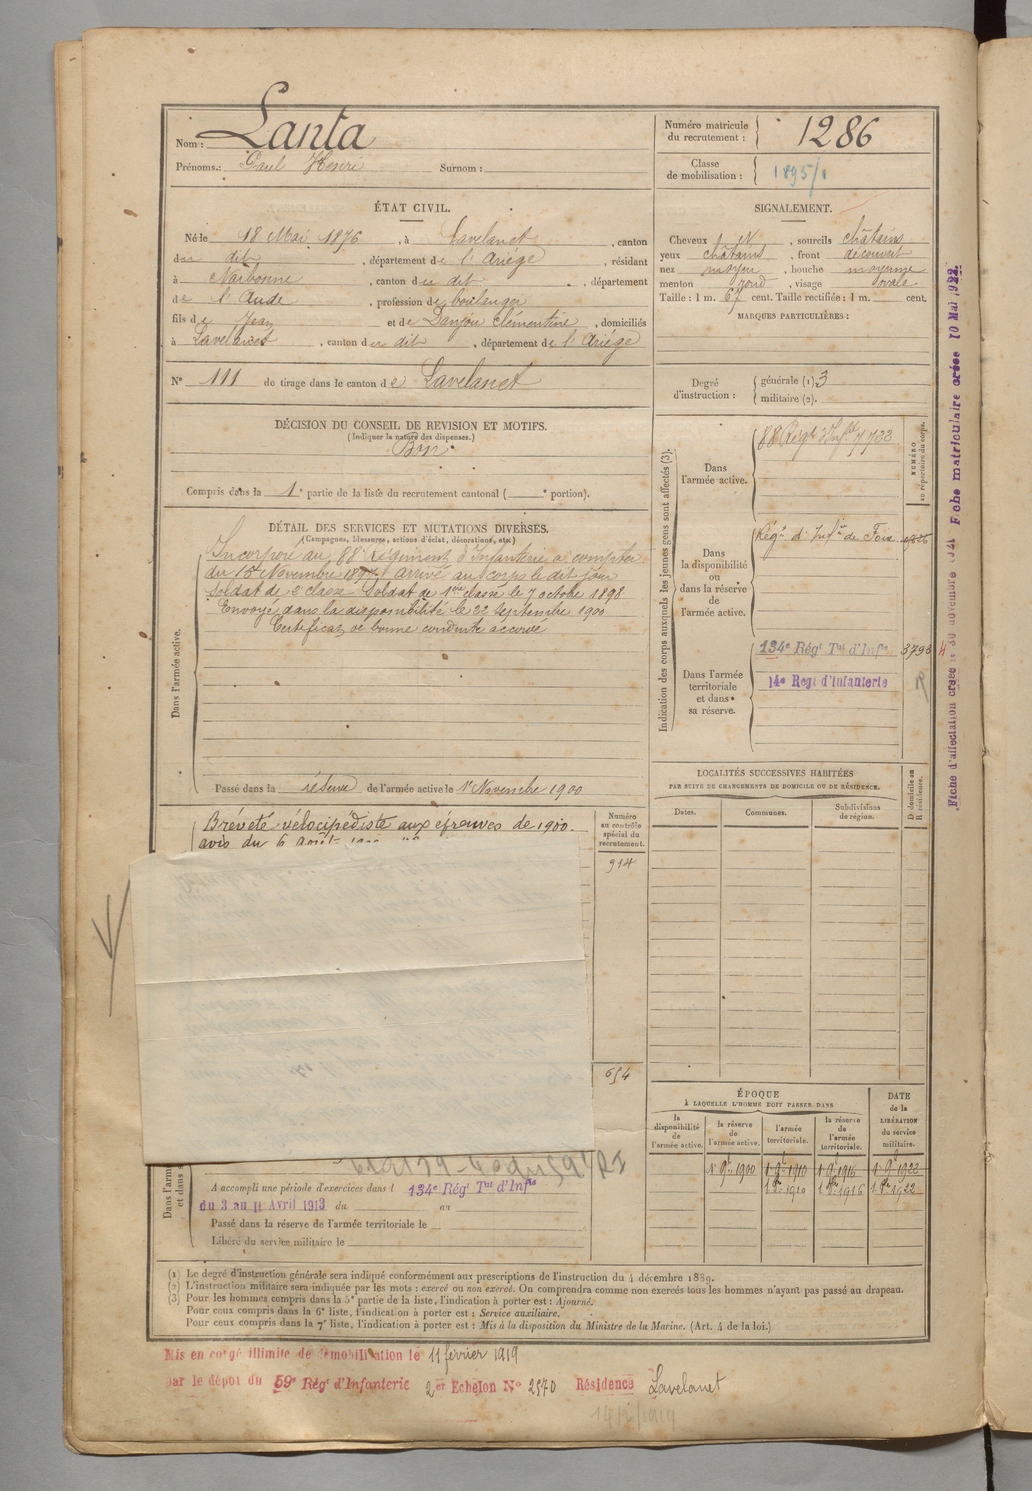 Nom : Lanta
Prénoms : Paul Henri Surnom :
Numéro matricule du recrutement : 1286
Classe de mobilisation : 1895/1
ÉTAT CIVIL.
Né le 18 Mai 1876, à Lavelanet, canton
du dit, département de l'Ariège, résidant
à Narbonne, canton du dit, département
de l'Aude, profession de boulanger
fils de Jean et de Danjou Clémentine, domiciliés
à Lavelanet, canton du dit, département de l'Ariège
N° 111 de tirage dans le canton de Lavelanet
SIGNALEMENT.
Cheveux N, sourcils châtains
yeux châtains, front découvert
nez moyen, bouche moyenne
menton rond, visage ovale
Taille : 1 m. 67 cent. Taille rectifiée : 1 m. cent.
MARQUES PARTICULIÈRES :
Degré d'instruction : générale (1) 3
militaire (2).
DÉCISION DU CONSEIL DE REVISION ET MOTIFS.
(Indiquer la nature des dispenses.)
Bon
Compris dans la 1e partie de la liste du recrutement cantonal ( e portion).
DÉTAIL DES SERVICES ET MUTATIONS DIVERSES.
(Campagnes, blessures, actions d'éclat, décorations, etc.)
Dans l'armée active.
Incorporé au 88e Régiment d'Infanterie à compter
du 15 Novembre 1897 arrivé au corps le dit jour
Soldat de 2e classe Soldat de 1ère classe le 7 octobre 1898
Envoyé dans la disponibilité le 22 septembre 1900
Certificat de bonne conduite accordé
Passé dans la réserve de l'armée active le 1er Novembre 1900
Breveté vélocipédiste aux épreuves de 1900.
avis du 6 août
Numéro au contrôle spécial du recrutement.
914
654
Indication des corps auxquels les jeunes gens sont affectés (3).
NUMÉRO au répertoire du corps.
Dans l'armée active.
88 Régt d'Infie 7733
Dans la disponibilité ou dans la réserve de l'armée active.
Régt d'Infie de Foix
Dans l'armée territoriale et dans sa réserve.
134e Régt Tal d'Infie 3793
14e Regt d'Infanterie
LOCALITÉS SUCCESSIVES HABITÉES
PAR SUITE DE CHANGEMENTS DE DOMICILE OU DE RÉSIDENCE.
Dates. Communes. Subdivisions de région. D domicile ou R résidence.
ÉPOQUE
À LAQUELLE L'HOMME DOIT PASSER DANS
DATE de la LIBÉRATION du service militaire.
la disponibilité de l'armée active. la réserve de l'armée active. l'armée territoriale. la réserve de l'armée territoriale.
1 9bre 1900 1 9bre 1910 1 9bre 1916 1 9bre 1922
1 8bre 1910 1 8bre 1916 1 8bre 1922
A accompli une période d'exercices dans l 134e Régt Tal d'Infie
du 3 au 11 Avril 1913 du au
Passé dans la réserve de l'armée territoriale le
Libéré du service militaire le
(1) Le degré d'instruction générale sera indiqué conformément aux prescriptions de l'instruction du 4 décembre 1889.
(2) L'instruction militaire sera indiquée par les mots : exercé ou non exercé. On comprendra comme non exercés tous les hommes n'ayant pas passé au drapeau.
(3) Pour les hommes compris dans la 5e partie de la liste, l'indication à porter est : Ajourné.
Pour ceux compris dans la 6e liste, l'indication à porter est : Service auxiliaire.
Pour ceux compris dans la 7e liste, l'indication à porter est : Mis à la disposition du Ministre de la Marine. (Art. 4 de la loi.)
Mis en congé illimité de démobilisation le 11 février 1919
par le dépôt du 59e Régt d'Infanterie 2er Echelon N° 2570 Résidence Lavelanet
Fiche matriculaire créée 10 Mai 1922.